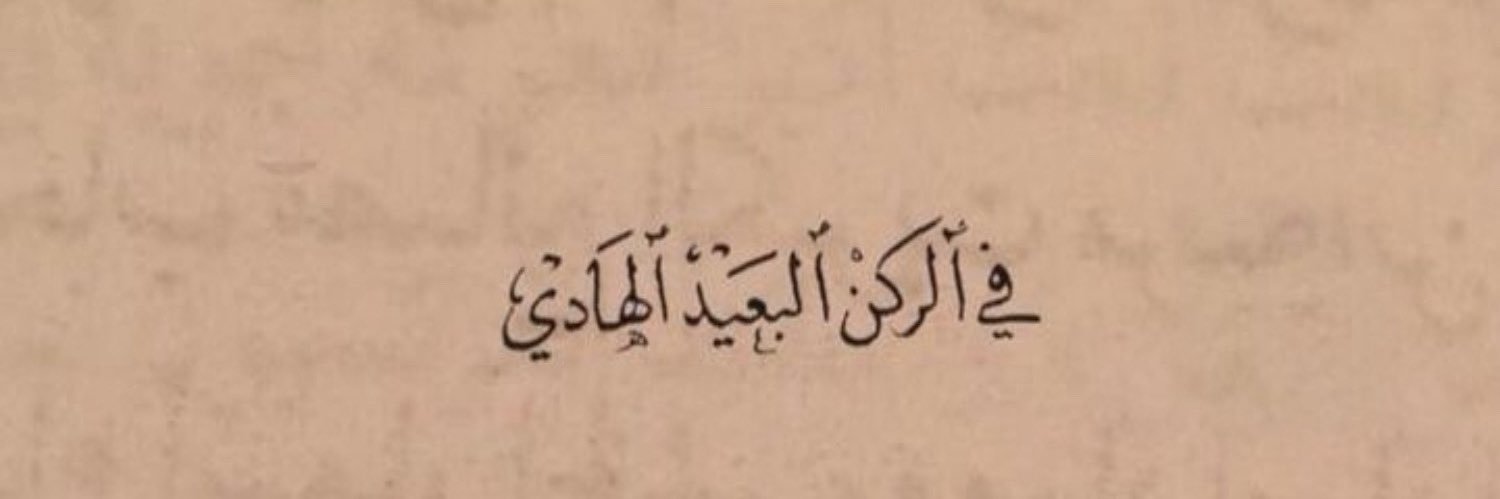 في ٱلركنْ ٱلبعَيدْ ٱلهَاديْ